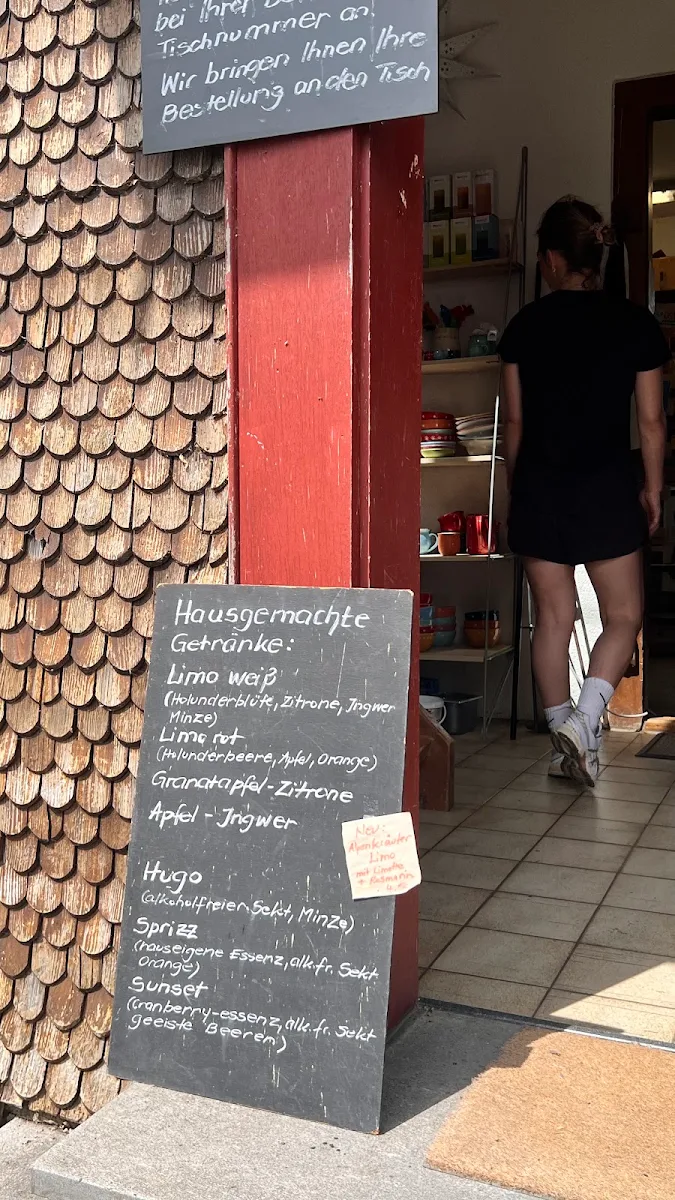 bei Ihrer
Tischnummer an!
Wir bringen Ihnen Ihre
Bestellung an den Tisch
Hausgemachte
Getränke:
Limo weiß
(Holunderblüte, Zitrone, Ingwer
Minze)
Limo rot
(Holunderbeere, Apfel, Orange)
Granatapfel-Zitrone
Apfel - Ingwer
Neu:
Alpenkräuter
Limo
mit Limette
+ Rosmarin
Hugo
(alkoholfreier Sekt, Minze)
Sprizz
(hauseigene Essenz, alk.fr. Sekt
Orange)
Sunset
(Cranberry-essenz, alk.fr. Sekt
geeiste Beeren)